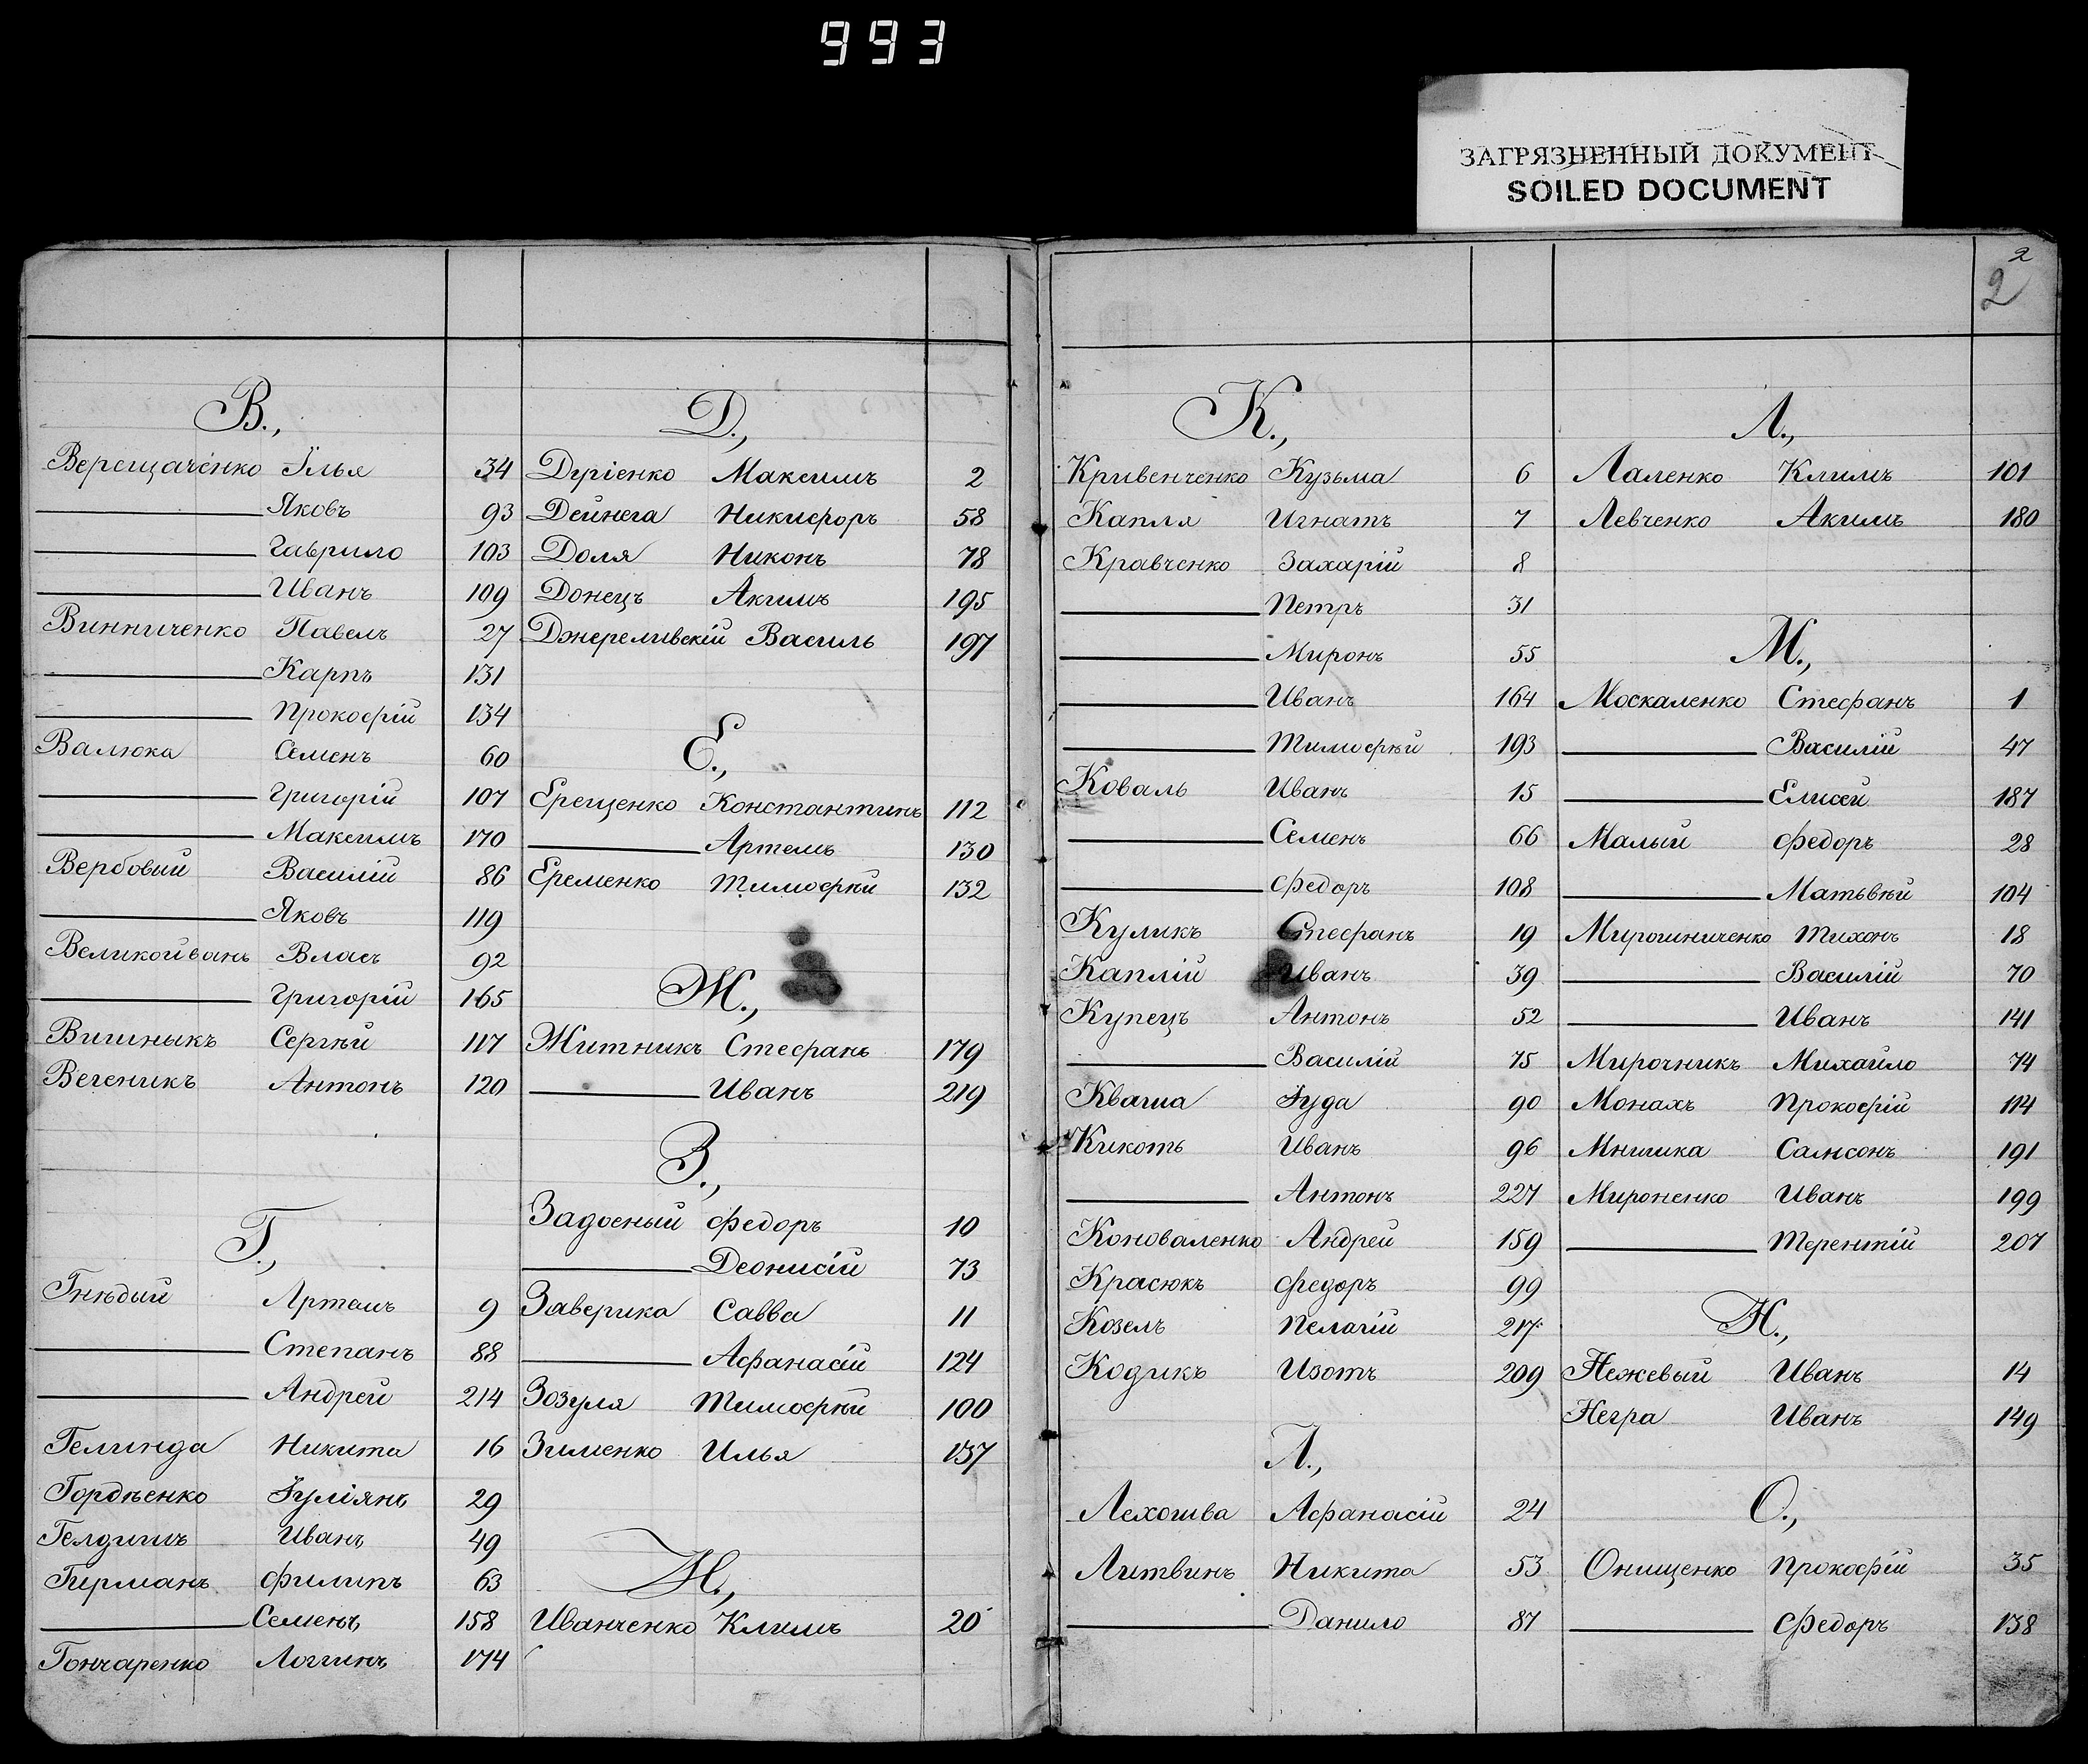 993
ЗАГРЯЗНЕННЫЙ ДОКУМЕНТ
SOILED DOCUMENT
В.,
Верещаченко Їлья 34
Яковъ 93
Гаврило 103
Иванъ 109
Винниченко Павелъ 27
Карпъ 131
Прокофій 134
Валюка Семенъ 60
Григорій 107
Максимъ 170
Вербовый Василій 86
Яковъ 119
Великоиванъ Власъ 92
Григорій 165
Вишныкъ Сергѣй 117
Вегеникъ Антонъ 120
Г.,
Гнѣдый Артемъ 9
Степанъ 88
Андрей 214
Гелинда Никита 16
Гордѣенко Іуліянъ 29
Иванъ 49
Гирманъ Филипъ 63
Семенъ 158
Гончаренко Логгинъ 174
Д.,
Дугіенко Максимъ 2
Дейнега Никифоръ 58
Доля Никонъ 78
Донецъ Акимъ 195
Джереливскій Василь 197
Е.,
Ерещенко Константинъ 112
Артемъ 130
Еременко Тимофѣй 132
Ж.,
Житникъ Стефанъ 179
Иванъ 219
З.,
Задоеный Федоръ 10
Деонисій 73
Заверика Савва 11
Афанасій 124
Зозуля Тимофѣй 100
Зименко Илья 137
И.,
Иванченко Климъ 20
2
2
К.,
Кривенченко Кузьма 6
Капля Игнатъ 7
Кравченко Захарій 8
Петръ 31
Миронъ 55
Иванъ 164
Тимофѣй 193
Коваль Иванъ 15
Семенъ 66
Федоръ 108
Куликъ Стефанъ 19
Каплій Иванъ 39
Купецъ Антонъ 52
Василій 75
Кваша Іуда 90
Кикоть Иванъ 96
Антонъ 227
Коноваленко Андрей 159
Красюкъ Федоръ 99
Козелъ Пелагій 217
Кодикъ Изотъ 209
Л.,
Лехошва Афанасій 24
Литвинъ Никита 53
Данило 87
Л.,
Лаленко Климъ 101
Левченко Акимъ 180
М.,
Москаленко Стефанъ 1
Василій 47
Елисей 187
Малый Федоръ 28
Матьвѣй 104
Мирошниченко Тихонъ 18
Василій 70
Иванъ 141
Мирочникъ Михайло 74
Монахъ Прокофій 114
Мнишка Самсонъ 191
Мироненко Иванъ 199
Терентій 207
Н.,
Нежевый Иванъ 14
Негра Иванъ 149
О.,
Онищенко Прокофій 35
Федоръ 138